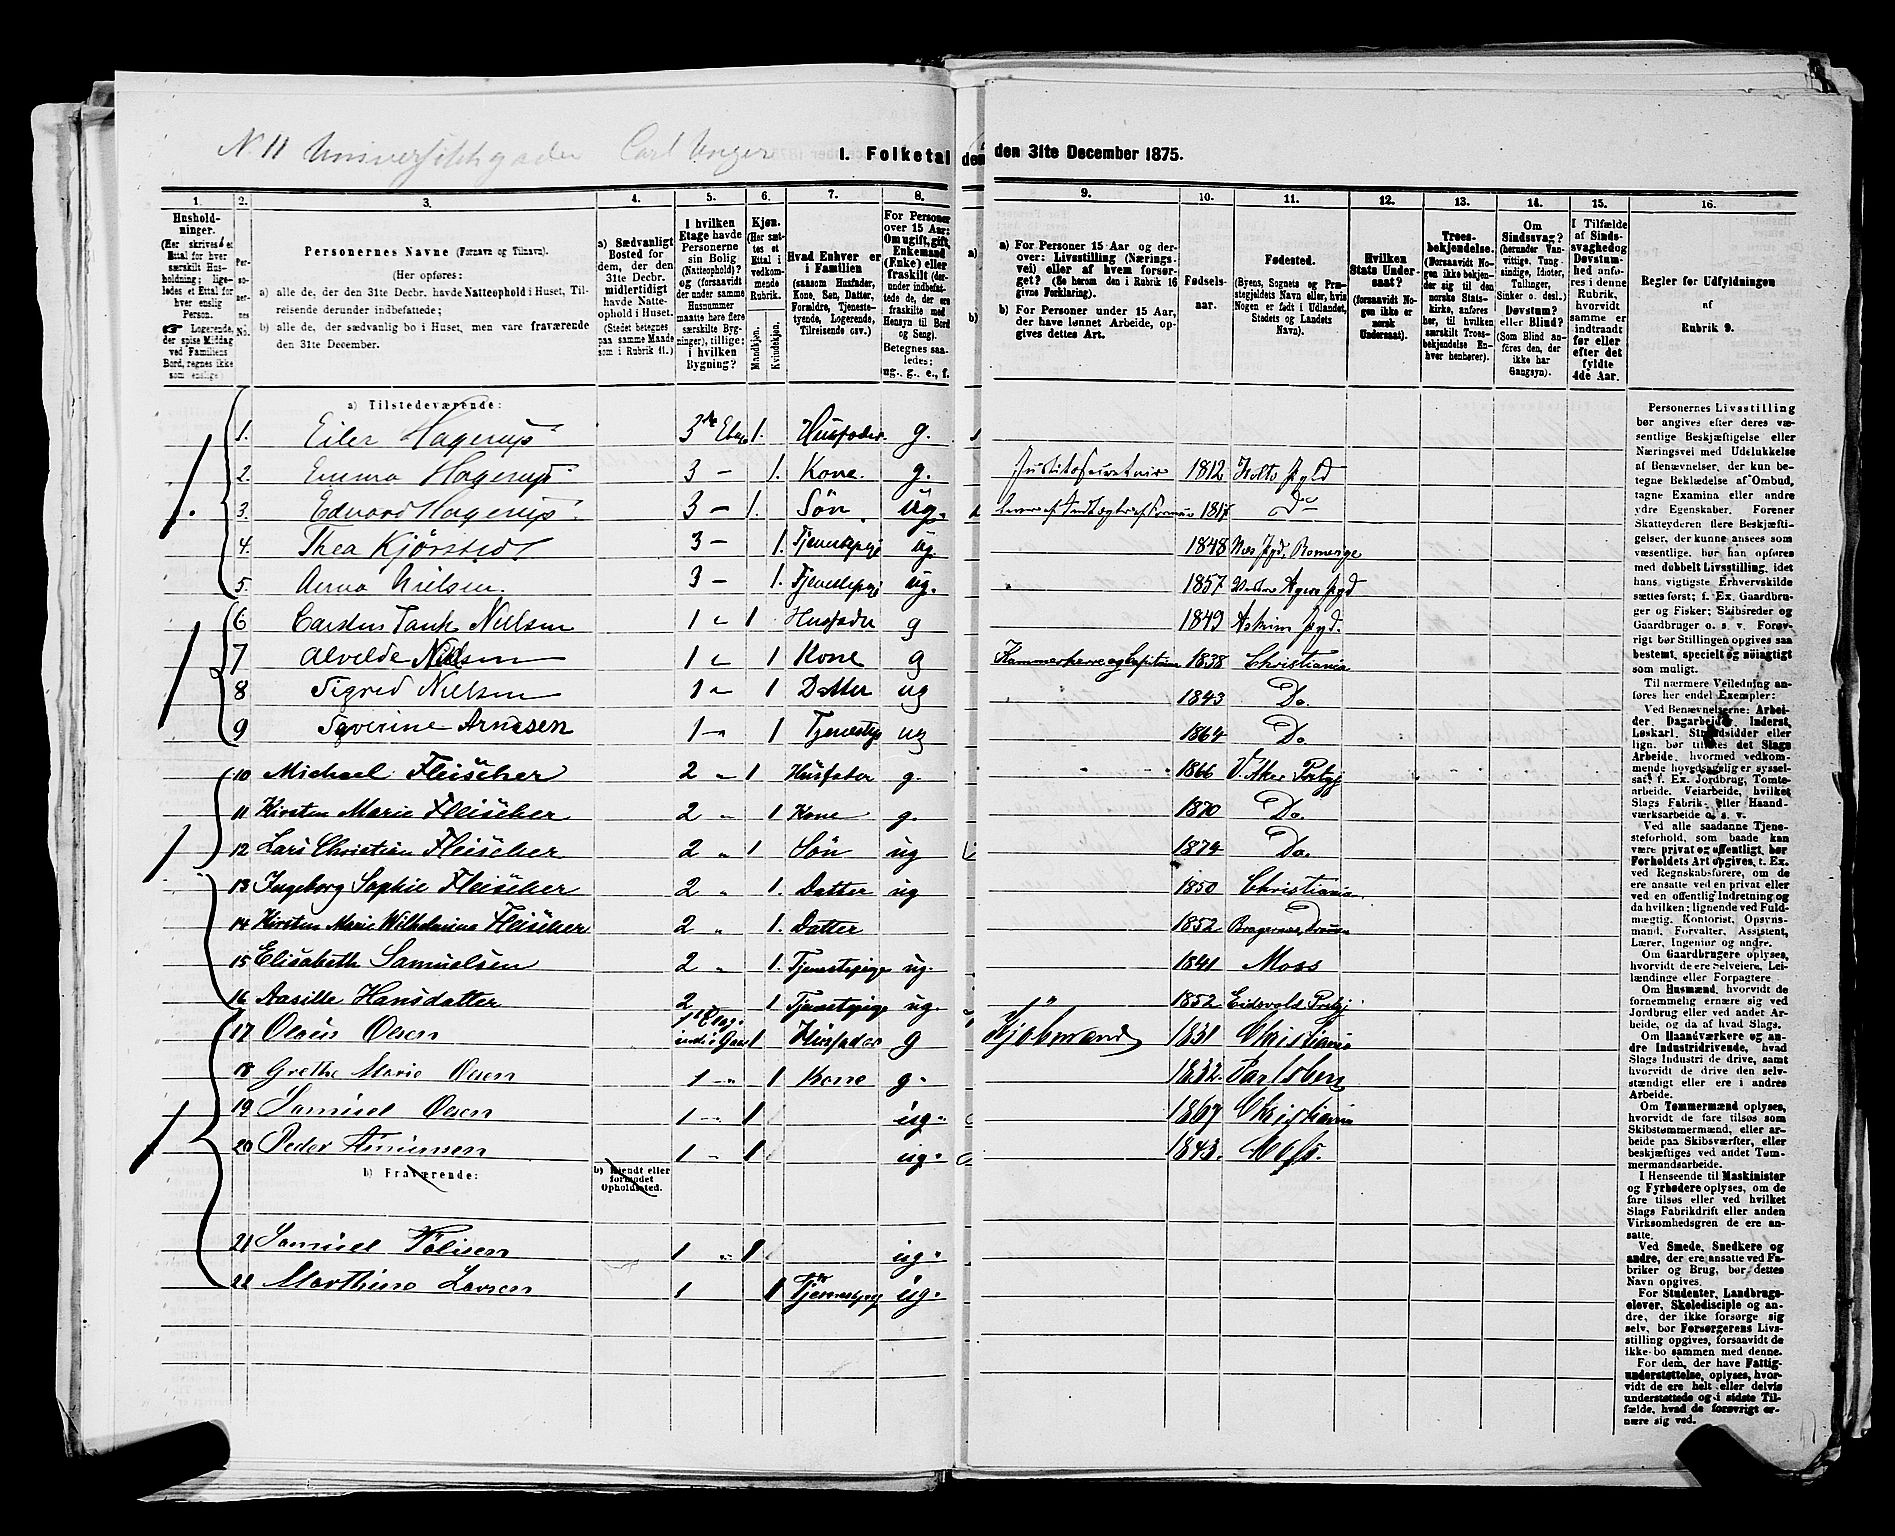 N. 11 Universitetsgaden Carl Unger
I. Folketal
den
den 31te December 1875.
1.
2.
3.
4.
5.
6.
7.
8.
Hushold-
ninger.
(Her skrives et
Ettal for hver
særskilt Hus-
holdning; lige-
ledes et Ettal for
hver enslig
Person.
☞ Logerende,
der spise Middag
ved Familiens
Bord, regnes ikke
som enslige.)
Per-
so-
ner-
nes
No.
Personernes Navne (Fornavn og Tilnavn).
(Her opføres:
a) alle de, der den 31te Decbr. havde Natteophold i Huset, Til-
reisende derunder indbefattede;
b) alle de, der sædvanlig bo i Huset, men vare fraværende
den 31te December.)
a) Sædvanligt
Bosted for
dem, der den
31te Decbr.
midlertidigt
havde Natte-
ophold i Huset.
(Stedet betegnes
paa samme Maade
som i Rubrik 11.)
I hvilken
Etage havde
Personerne
sin Bolig
(Natteophold)?
og (forsaavidt
der under samme
Husnummer
maatte høre flere
særskilte Byg-
ninger), tillige:
i hvilken
Bygning?
Kjøn.
(Her sæt-
tes et
Ettal i
vedkom-
mende
Rubrik.)
Mandkjøn.
Kvindekjøn.
Hvad Enhver er
i Familien
(saasom Husfader,
Kone, Søn, Datter,
Forældre, Tjeneste-
tyende, Logerende,
Tilreisende osv.).
For Personer
over 15 Aar:
Om ugift, gift,
Enkemand
(Enke) eller
fraskilt (der-
under indbefat-
tede de, der ere
fraskilte med
Hensyn til Bord
og Seng).
Betegnes saa-
ledes:
ug., g., e., f.
a) Tilstedeværende:
1. Eiler Hagerup 3die Etage 1. Husfader. g.
2. Emma Hagerup 3 — 1. Kone. g.
3. Edvard Hagerup. 3 — 1. Søn. ug.
4. Thea Kjørsted 3 — 1. Tjenestepige ug.
5. Anna Nielsen. 3 — 1. Tjenestepige ug.
6 Carsten Tank Nielsen 1 " 1 Husfader g
7 Alvilde Nielsen 1 " 1 Kone g
8 Sigrid Nielsen 1 " 1 Datter ug
9 Severine Arnesen 1 " 1 Tjenestep ug
10 Michael Fleischer 2 " 1 Husfader g.
11 Kirsten Marie Fleischer 2 " 1 Kone g.
12 Lars Christian Fleischer 2 " 1 Søn ug
13 Ingeborg Sophie Fleischer 2 " 1. Datter ug
14 Kirsten Marie Wilhelmine Fleischer 2 " 1. Datter
15 Elisabeth Samuelsen 2 " 1. Tjenestepige ug.
16 Aasille Hansdatter 2 1 Tjenestpige ug.
17 Olaus Olsen 1 Etag. ind i Gaar 1 Husfader g
18 Grethe Marie Olsen 1 — " 1 Kone g.
19 Samuel Olsen 1 — " 1 ug.
20 Peder Amunsen 1 " 1 ug.
b) Fraværende:
b) Kjendt eller
formodet
Opholdssted.
21 Samuel 1 " 1 ug.
22 Marthine Larsen 1 1 Tjenestepig ug.
9.
10.
11.
12.
13.
14.
15.
16.
a)
b)
a) For Personer 15 Aar og der-
over: Livsstilling (Nærings-
vei) eller af hvem forsør-
get? (Se herom den i Rubrik 16
givne Forklaring).
b) For Personer under 15 Aar,
der have lønnet Arbeide, op-
gives dettes Art.
Fødsels-
aar.
Fødested.
(Byens, Sognets og Præ-
stegjeldets Navn eller, hvis
Nogen er født i Udlandet,
Stedets og Landets
Navn).
Hvilken
Stats Under-
saat?
(forsaavidt No-
gen ikke er
norsk
Undersaat).
Troes-
bekjendelse.
(Forsaavidt No-
gen ikke bekjen-
der sig til den
norske Stats-
kirke, anføres
her, til hvilken
særskilt Troes-
bekjendelse En-
hver henhører).
Om
Sindssvag?
(herunder Van-
vittige, Tung-
sindige, Idioter,
Tullinger,
Sinker o. desl.).
Døvstum?
eller Blind?
(Som Blind an-
føres den, der
ikke har
Gangsyn).
I Tilfælde
af Sinds-
svaghed og
Døvstum-
hed anfø-
res i denne
Rubrik,
hvorvidt
samme er
indtraadt
før eller
efter det
fyldte
4de Aar.
Regler for Udfyldningen
af
Rubrik 9.
Justitssecretair 1812 Holts Pgld
1817 Do
1848 Næs Pgd. Romerige
" 1857 Vestre Agers Pgd
1849 Askim Pgd.
Kammerherre og Capitain 1838 Christiania
" 1843 Do.
1864 Do
" " 1866 V. Aker Prstgj
1870 Do.
1874 Do.
1850 Christiania
1852 Bragernæs, Dramm
1841 Moss
" 1852. Eidsvold Prstgj
Kjøbmand 1831 Christiania
1832. Jarlsberg
1867 Christiania
1843. Moss.
Personernes Livsstilling
bør angives efter deres væ-
sentlige Beskjæftigelse eller
Næringsvei med Udelukkelse
af Benævnelser, der kun be-
tegne Beklædelse af Ombud,
tagne Examina eller andre
ydre Egenskaber. Forener
Skatteyderen flere Beskjæfti-
gelser, der kunne ansees som
væsentlige, bør han opføres
med dobbelt Livsstilling, idet
hans vigtigste Erhvervskilde
sættes først; f. Ex. Gaardbru-
ger og Fisker; Skibsreder og
Gaardbruger o. s. v. Forøv-
rigt bør Stillingen opgives saa
bestemt, specielt og nøiagtigt
som muligt.
Til nærmere Veiledning an-
føres her endel Exempler:
Ved Benævnelserne: Arbei-
der, Dagarbeider, Inderst,
Løskarl, Strandsidder eller
lign. bør tilføies det Slags
Arbeide, hvormed vedkom-
mende hovedsagelig er syssel-
sat; f. Ex. Jordbrug, Tomte-
arbeide, Veiarbeide, hvilket
Slags Fabrik- eller Haand-
værksarbeide o. s. v.
Ved alle saadanne Tjene-
steforhold, som baade kan
være privat og offentligt, bør
Forholdets Art opgives, t. Ex.
ved Regnskabsførere, om de
ere ansatte ved en privat eller
ved en offentlig Indretning og
da hvilken; lignende ved Fuld-
mægtig, Kontorist, Opsyns-
mand, Forvalter, Assistent,
Lærer, Ingeniør og andre.
Om Gaardbrugere oplyses,
hvorvidt de ere Selveiere, Lei-
lændinge eller Forpagtere.
Om Husmænd, hvorvidt de
fornemmelig ernære sig ved
Jordbrug eller ved andet Ar-
beide, og da af hvad Slags.
Om Haandværkere og an-
dre Industridrivende, hvad
Slags Industri de drive, samt
hvorvidt de drive den selv-
stændigt eller ere i andres
Arbeide.
Om Tømmermænd oplyses,
hvorvidt de fare tilsøs som
Skibstømmermænd, eller ar-
beide paa Skibsværfter, eller
beskjæftiges ved andet Tøm-
mermandsarbeide.
I Henseende til Maskinister
og Fyrbødere oplyses, om de
fare tilsøs eller ved hvilket
Slags Fabrikdrift eller anden
Virksomhedsgren de ere an-
satte.
Ved Smede, Snedkere og
andre, der ere ansatte ved Fa-
briker og Brug, bør dettes
Navn opgives.
For Studenter, Landbrugs-
elever, Skoledisciple og an-
dre, der ikke forsørge sig
selv, bør Forsørgerens Livs-
stilling opgives, forsaavidt de
ikke bo sammen med denne.
For dem, der have Fattig-
understøttelse, oplyses, hvor-
vidt de ere helt eller delvis
understøttede og i sidste Til-
fælde, hvad de forøvrigt er-
nære sig ved.